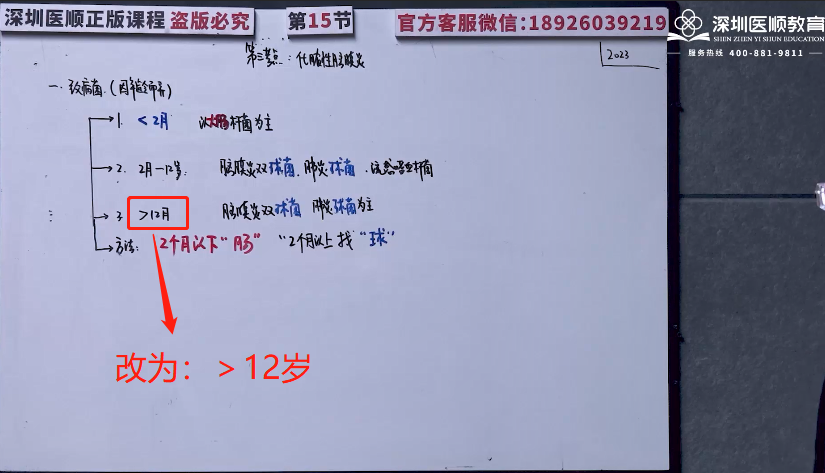 深圳医顺正版课程 盗版必究 第15节 官方客服微信:18926039219
深圳医顺教育
SHEN ZHEN YI SHUN EDUCATION
服务热线 400-881-9811
第三考点:化脓性脑膜炎
2023
一.致病菌.(因年龄而异)
1. <2月 以大肠杆菌为主
2. 2月-12岁: 脑膜炎双球菌、肺炎球菌、流感嗜血杆菌
3. >12月 脑膜炎双球菌 肺炎球菌为主
方法: 2个月以下“肠” “2个月以上找“球”
改为:>12岁